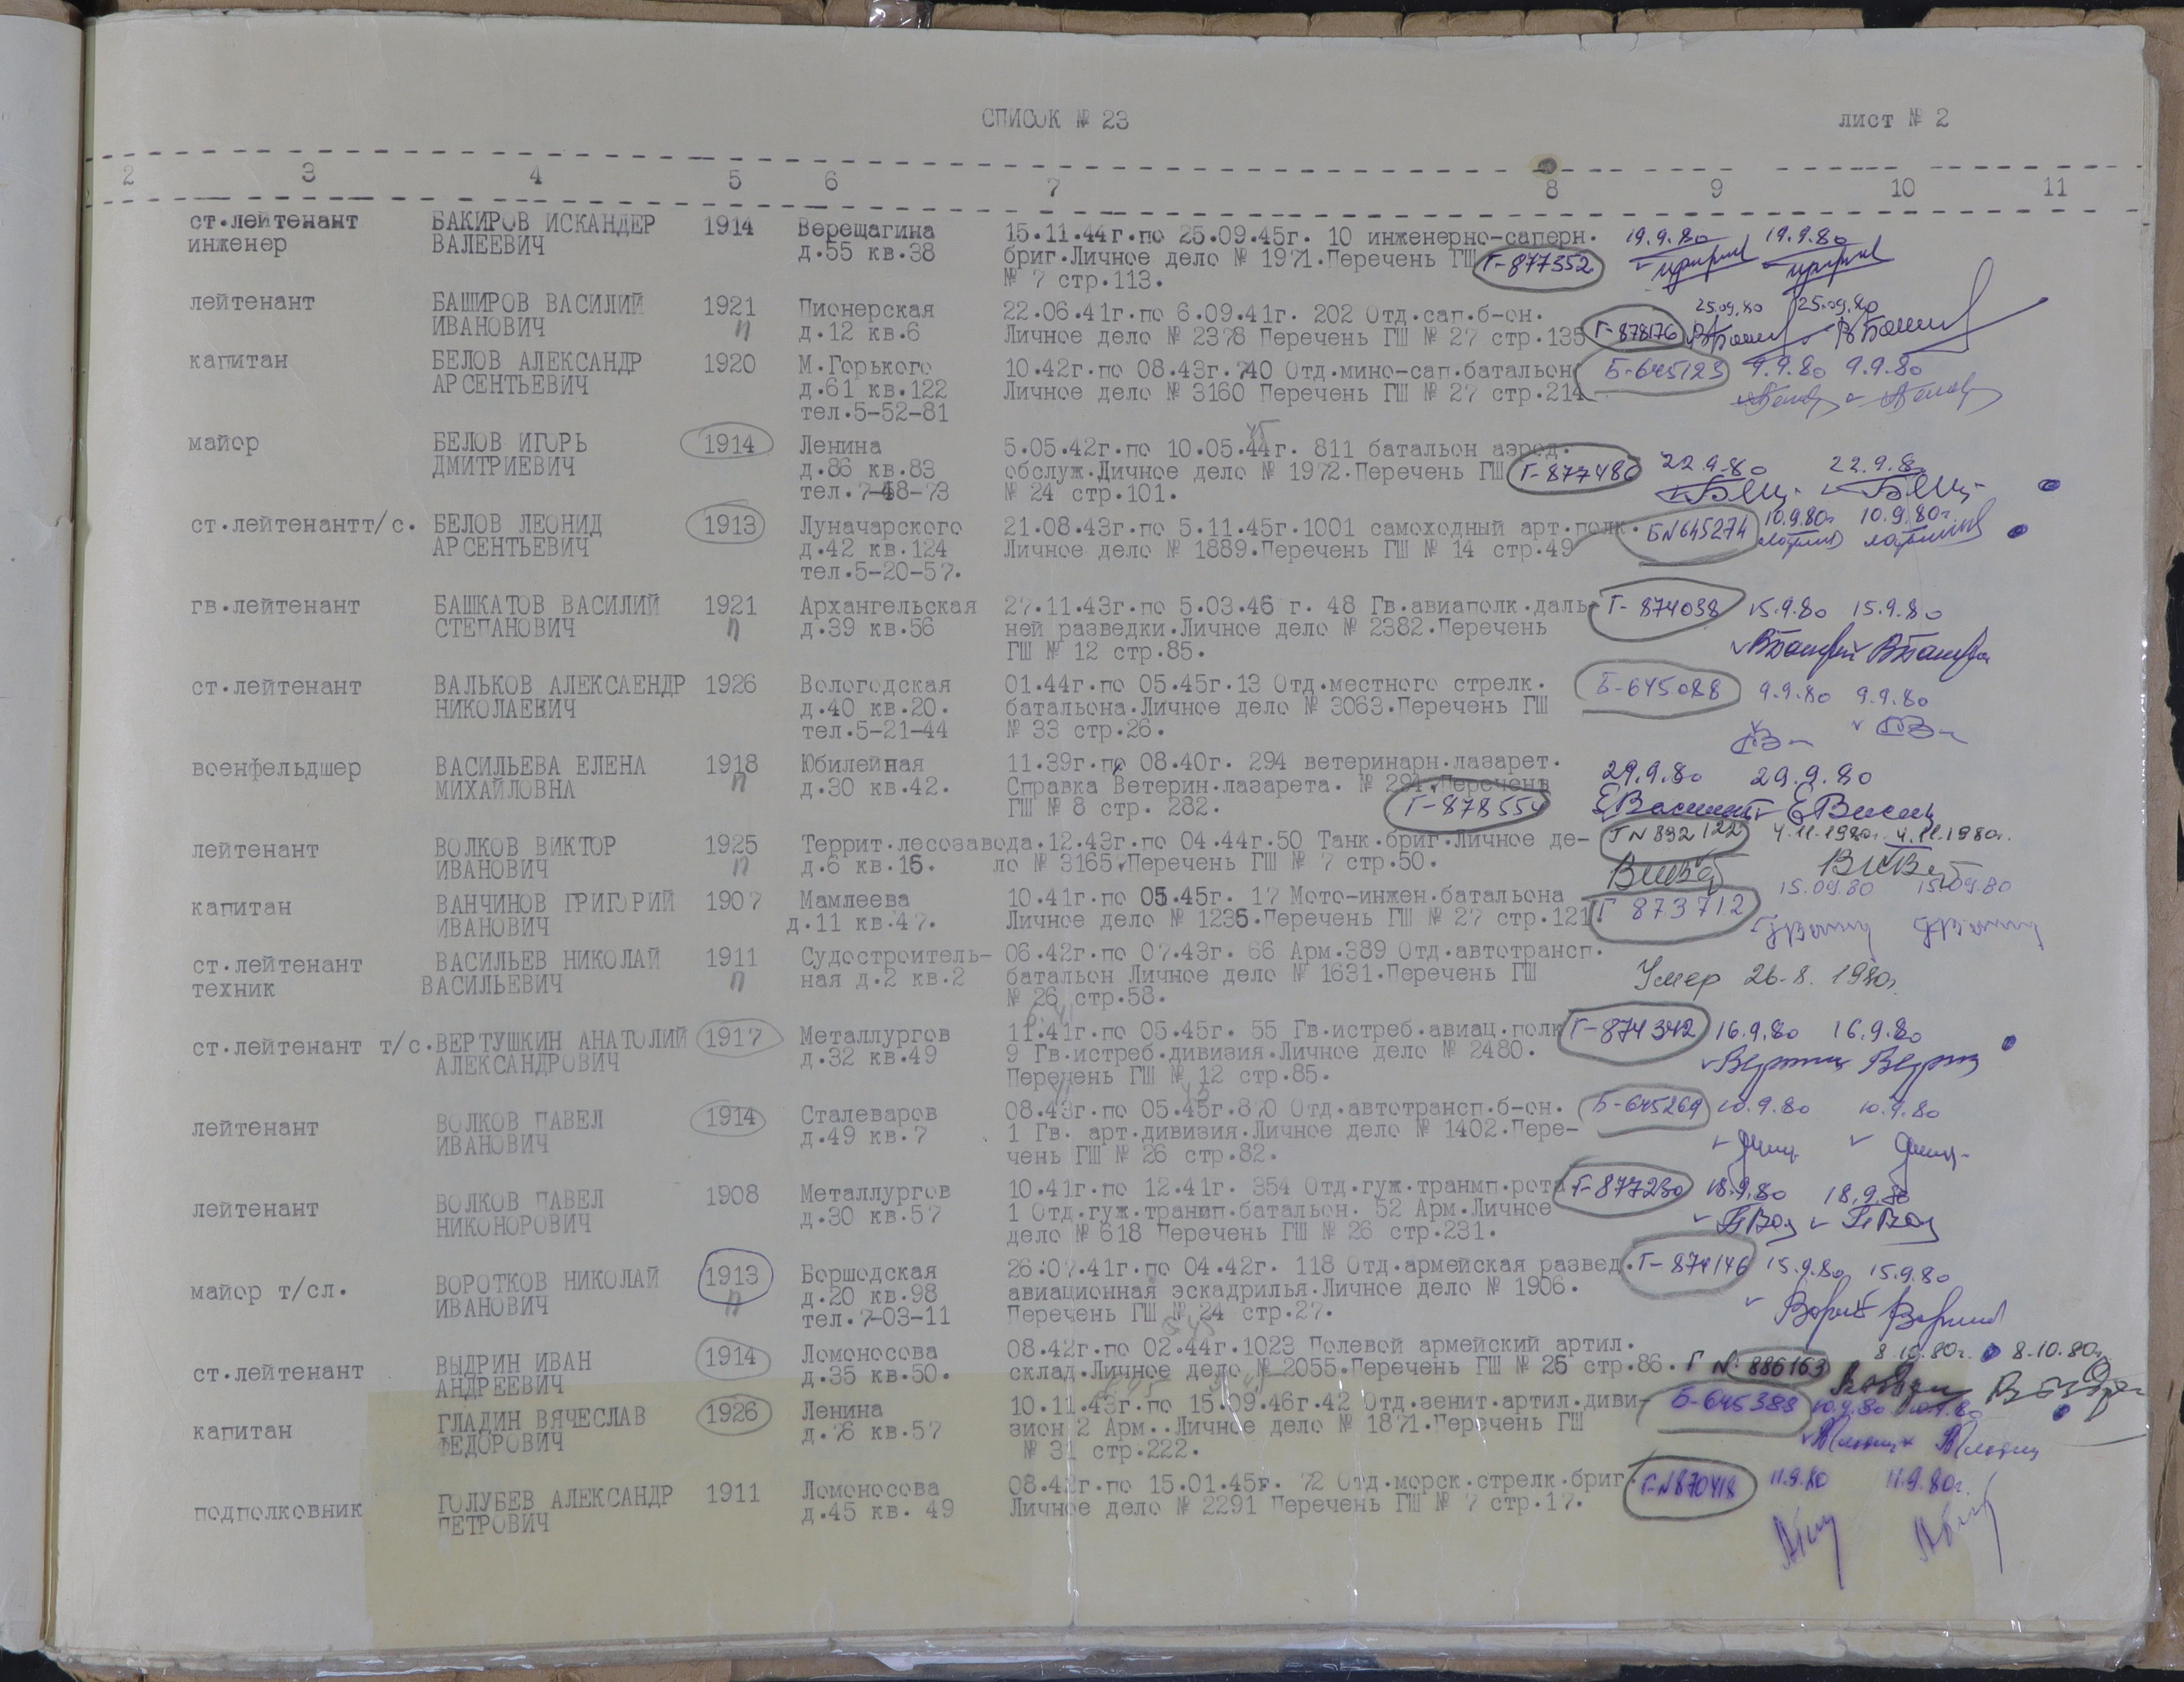 СПИСОК № 23
лист № 2
2 3 4 5 6 7 8 9 10 11
ст.лейтенант БАКИРОВ ИСКАНДЕР 1914 Верещагина 15.11.44г.по 25.09.45г. 10 инженерно-саперн. 19.9.80 19.9.80
инженер ВАЛЕЕВИЧ д.55 кв.38 бриг.Личное дело № 1971.Перечень ГШ Г-877352
№ 7 стр.113.
лейтенант БАШИРОВ ВАСИЛИЙ 1921 Пионерская 22.06.41г.по 6.09.41г. 202 Отд.сап.б-он. 25.09.80 25.09.80
ИВАНОВИЧ п д.12 кв.6 Личное дело № 2378 Перечень ГШ № 27 стр.135 Г-878176
капитан БЕЛОВ АЛЕКСАНДР 1920 М.Горького 10.42г.по 08.43г.740 Отд.мино-сап.батальон Б-645123 9.9.80 9.9.80
АРСЕНТЬЕВИЧ д.61 кв.122 Личное дело № 3160 Перечень ГШ № 27 стр.214
тел.5-52-81
майор БЕЛОВ ИГОРЬ 1914 Ленина 5.05.42г.по 10.05.44г. 811 батальон аэрод. 22.9.80 22.9.80
ДМИТРИЕВИЧ д.86 кв.83 обслуж.Личное дело № 1972.Перечень ГШ Г-877480
тел.7-48-73 № 24 стр.101.
ст.лейтенантт/с. БЕЛОВ ЛЕОНИД 1913 Луначарского 21.08.43г.по 5.11.45г.1001 самоходный арт.полк. Б№645274 10.9.80г 10.9.80г.
АРСЕНТЬЕВИЧ д.42 кв.124 Личное дело № 1889.Перечень ГШ № 14 стр.49
тел.5-20-57.
гв.лейтенант БАШКАТОВ ВАСИЛИЙ 1921 Архангельская 27.11.43г.по 5.03.46 г. 48 Гв.авиаполк.даль- Г-874038 15.9.80 15.9.80
СТЕПАНОВИЧ п д.39 кв.56 ней разведки.Личное дело № 2382.Перечень
ГШ № 12 стр.85.
ст.лейтенант ВАЛЬКОВ АЛЕКСАЕНДР 1926 Вологодская 01.44г.по 05.45г.13 Отд.местного стрелк. Б-645088 9.9.80 9.9.80
НИКОЛАЕВИЧ д.40 кв.20. батальона.Личное дело № 3063.Перечень ГШ
тел.5-21-44 № 33 стр.26.
военфельдшер ВАСИЛЬЕВА ЕЛЕНА 1918 Юбилейная 11.39г.по 08.40г. 294 ветеринарн.лазарет. 29.9.80 29.9.80
МИХАЙЛОВНА п д.30 кв.42. Справка Ветерин.лазарета. № 294.Перечень
ГШ № 8 стр. 282. Г-878554
лейтенант ВОЛКОВ ВИКТОР 1925 Террит.лесозавода.12.43г.по 04.44г.50 Танк.бриг.Личное де- Г№892122 4.11.1980г. 4.11.1980г.
ИВАНОВИЧ п д.6 кв.16. ло № 3165.Перечень ГШ № 7 стр.50.
капитан ВАНЧИНОВ ГРИГОРИЙ 1907 Мамлеева 10.41г.по 05.45г. 17 Мото-инжен.батальона 15.09.80 15.09.80
ИВАНОВИЧ д.11 кв.47. Личное дело № 1236.Перечень ГШ № 27 стр.121 Г 873712
ст.лейтенант ВАСИЛЬЕВ НИКОЛАЙ 1911 Судостроитель- 06.42г.по 07.43г. 66 Арм.389 Отд.автотрансп.
техник ВАСИЛЬЕВИЧ п ная д.2 кв.2 батальон Личное дело № 1631.Перечень ГШ Умер 26.8.1980г.
№ 26 стр.58.
ст.лейтенант т/с.ВЕРТУШКИН АНАТОЛИЙ 1917 Металлургов 11.41г.по 05.45г. 55 Гв.истреб.авиац.полк Г-874342 16.9.80 16.9.80
АЛЕКСАНДРОВИЧ д.32 кв.49 9 Гв.истреб.дивизия.Личное дело № 2480.
Перечень ГШ № 12 стр.85.
лейтенант ВОЛКОВ ПАВЕЛ 1914 Сталеваров 08.43г.по 05.45г.870 Отд.автотрансп.б-он. Б-645269 10.9.80 10.9.80
ИВАНОВИЧ д.49 кв.7 1 Гв. арт.дивизия.Личное дело № 1402.Пере-
чень ГШ № 26 стр.82.
лейтенант ВОЛКОВ ПАВЕЛ 1908 Металлургов 10.41г.по 12.41г. 354 Отд.гуж.транмп.рота Г-877230 18.9.80 18.9.80
НИКОНОРОВИЧ д.30 кв.57 1 Отд.гуж.транмп.батальон. 52 Арм.Личное
дело № 618 Перечень ГШ № 26 стр.231.
майор т/сл. ВОРОТКОВ НИКОЛАЙ 1913 Боршодская 26.07.41г.по 04.42г. 118 Отд.армейская развед. Г-874146 15.9.80 15.9.80
ИВАНОВИЧ п д.20 кв.98 авиационная эскадрилья.Личное дело № 1906.
тел.7-03-11 Перечень ГШ № 24 стр.27.
ст.лейтенант ВЫДРИН ИВАН 1914 Ломоносова 08.42г.по 02.44г.1023 Полевой армейский артил. 8.10.80г. 8.10.80г.
АНДРЕЕВИЧ д.35 кв.50. склад.Личное дело № 2055.Перечень ГШ № 26 стр.86. Г № 886163
капитан ГЛАДИН ВЯЧЕСЛАВ 1926 Ленина 10.11.43г.по 15.09.46г.42 Отд.зенит.артил.диви- Б-645383 10.9.80 10.9.80
ФЕДОРОВИЧ д.76 кв.57 зион 2 Арм..Личное дело № 1871.Перечень ГШ
№ 31 стр.222.
подполковник ГОЛУБЕВ АЛЕКСАНДР 1911 Ломоносова 08.42г.по 15.01.45г. 72 Отд.морск.стрелк.бриг. Г-№870418 11.9.80 11.9.80г.
ПЕТРОВИЧ д.45 кв. 49 Личное дело № 2291 Перечень ГШ № 7 стр.17.